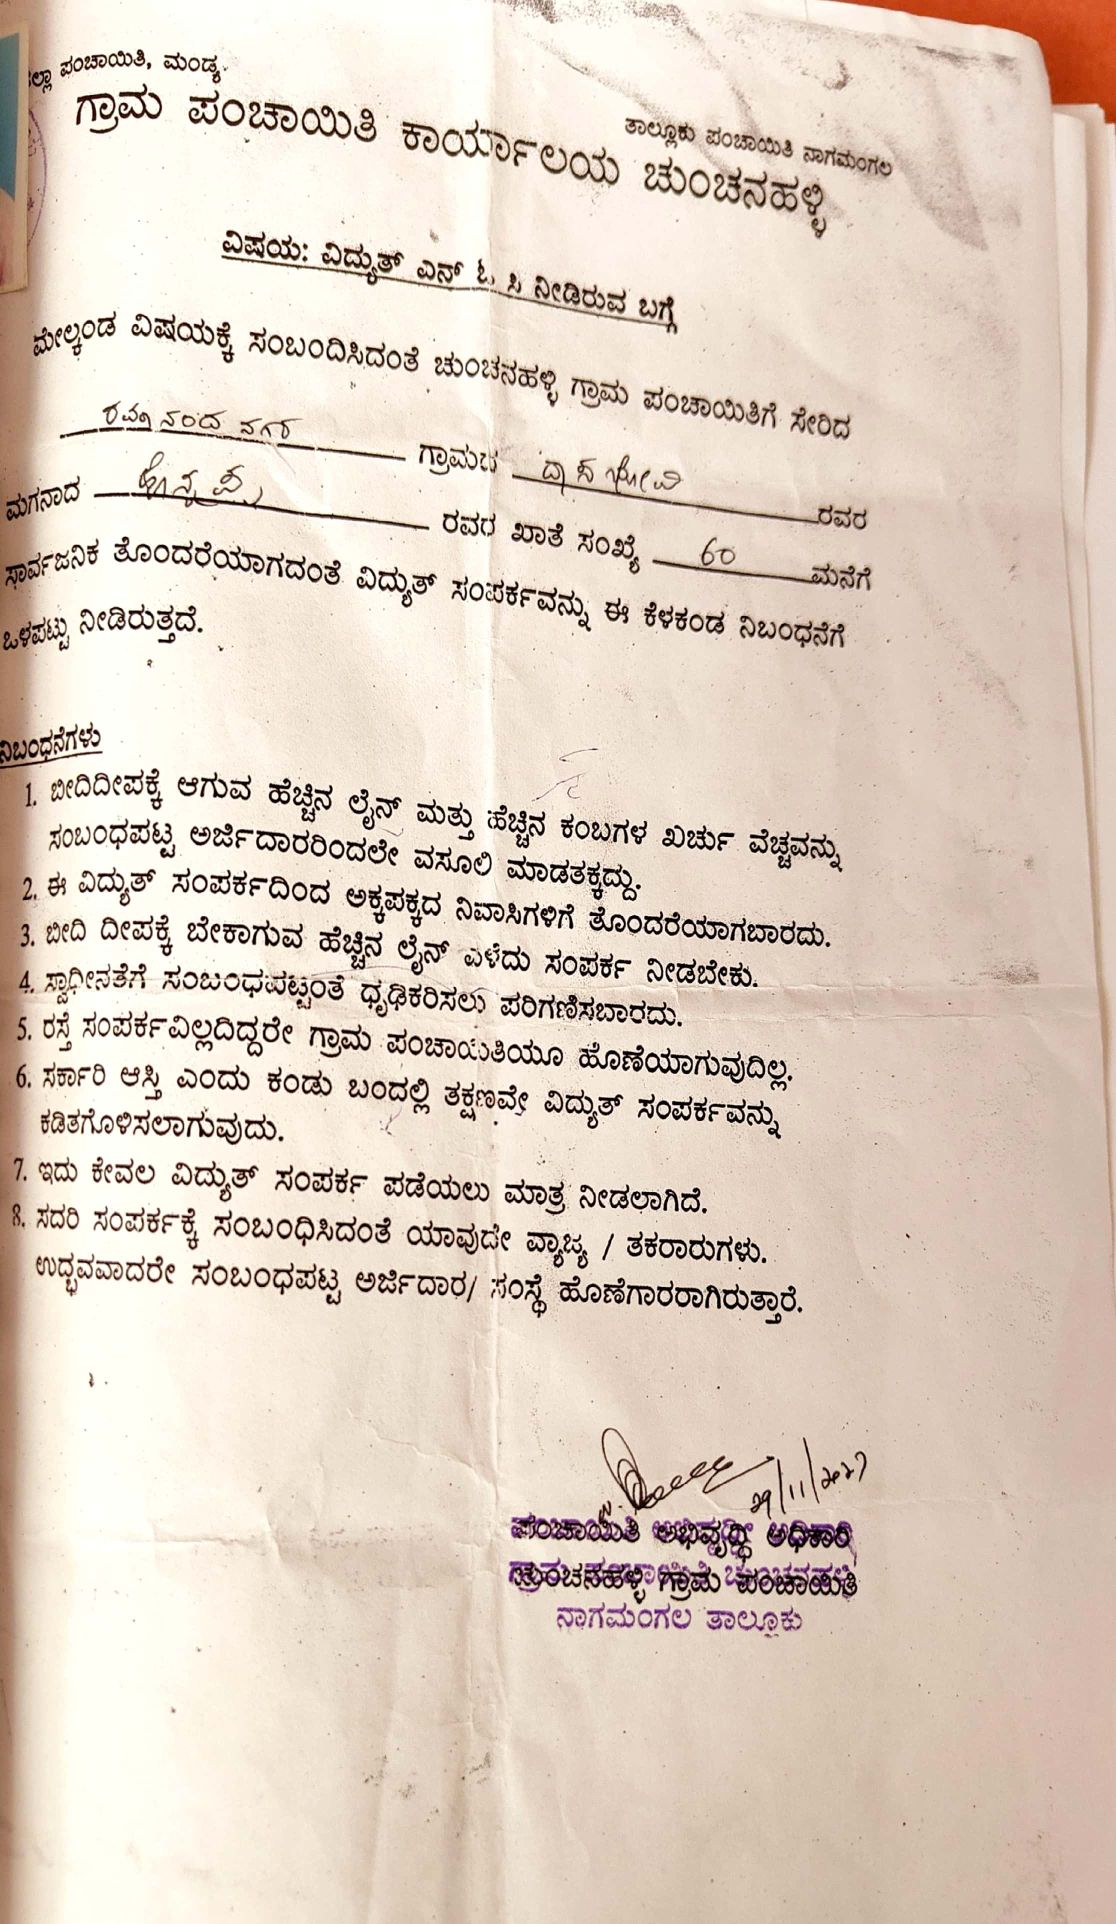 ಜಿಲ್ಲಾ ಪಂಚಾಯಿತಿ, ಮಂಡ್ಯ.
ತಾಲ್ಲೂಕು ಪಂಚಾಯಿತಿ ನಾಗಮಂಗಲ
ಗ್ರಾಮ ಪಂಚಾಯಿತಿ ಕಾರ್ಯಾಲಯ ಚುಂಚನಹಳ್ಳಿ
ವಿಷಯ: ವಿದ್ಯುತ್ ಎನ್ ಓ ಸಿ ನೀಡಿರುವ ಬಗ್ಗೆ
ಮೇಲ್ಕಂಡ ವಿಷಯಕ್ಕೆ ಸಂಬಂದಿಸಿದಂತೆ ಚುಂಚನಹಳ್ಳಿ ಗ್ರಾಮ ಪಂಚಾಯಿತಿಗೆ ಸೇರಿದ
ನಗರ ಗ್ರಾಮದ ದಾಸ ಭೋವಿ ರವರ
ಮಗನಾದ ರವರ ಖಾತೆ ಸಂಖ್ಯೆ 60 ಮನೆಗೆ
ಸಾರ್ವಜನಿಕ ತೊಂದರೆಯಾಗದಂತೆ ವಿದ್ಯುತ್ ಸಂಪರ್ಕವನ್ನು ಈ ಕೆಳಕಂಡ ನಿಬಂಧನೆಗೆ
ಒಳಪಟ್ಟು ನೀಡಿರುತ್ತದೆ.
ನಿಬಂಧನೆಗಳು
1. ಬೀದಿದೀಪಕ್ಕೆ ಆಗುವ ಹೆಚ್ಚಿನ ಲೈನ್ ಮತ್ತು ಹೆಚ್ಚಿನ ಕಂಬಗಳ ಖರ್ಚು ವೆಚ್ಚವನ್ನು
ಸಂಬಂಧಪಟ್ಟ ಅರ್ಜಿದಾರರಿಂದಲೇ ವಸೂಲಿ ಮಾಡತಕ್ಕದ್ದು.
2. ಈ ವಿದ್ಯುತ್ ಸಂಪರ್ಕದಿಂದ ಅಕ್ಕಪಕ್ಕದ ನಿವಾಸಿಗಳಿಗೆ ತೊಂದರೆಯಾಗಬಾರದು.
3. ಬೀದಿ ದೀಪಕ್ಕೆ ಬೇಕಾಗುವ ಹೆಚ್ಚಿನ ಲೈನ್ ಎಳೆದು ಸಂಪರ್ಕ ನೀಡಬೇಕು.
4. ಸ್ವಾಧೀನತೆಗೆ ಸಂಬಂಧಪಟ್ಟಂತೆ ಧೃಢಿಕರಿಸಲು ಪರಿಗಣಿಸಬಾರದು.
5. ರಸ್ತೆ ಸಂಪರ್ಕವಿಲ್ಲದಿದ್ದರೇ ಗ್ರಾಮ ಪಂಚಾಯಿತಿಯೂ ಹೊಣೆಯಾಗುವುದಿಲ್ಲ.
6. ಸರ್ಕಾರಿ ಆಸ್ತಿ ಎಂದು ಕಂಡು ಬಂದಲ್ಲಿ ತಕ್ಷಣವೇ ವಿದ್ಯುತ್ ಸಂಪರ್ಕವನ್ನು
ಕಡಿತಗೊಳಿಸಲಾಗುವುದು.
7. ಇದು ಕೇವಲ ವಿದ್ಯುತ್ ಸಂಪರ್ಕ ಪಡೆಯಲು ಮಾತ್ರ ನೀಡಲಾಗಿದೆ.
8. ಸದರಿ ಸಂಪರ್ಕಕ್ಕೆ ಸಂಬಂಧಿಸಿದಂತೆ ಯಾವುದೇ ವ್ಯಾಜ್ಯ / ತಕರಾರುಗಳು.
ಉದ್ಭವವಾದರೇ ಸಂಬಂಧಪಟ್ಟ ಅರ್ಜಿದಾರ/ ಸಂಸ್ಥೆ ಹೊಣೆಗಾರರಾಗಿರುತ್ತಾರೆ.
ಪಂಚಾಯಿತಿ ಅಭಿವೃದ್ಧಿ ಅಧಿಕಾರಿ
ಚುಂಚನಹಳ್ಳಿ ಗ್ರಾಮ ಪಂಚಾಯಿತಿ
ನಾಗಮಂಗಲ ತಾಲ್ಲೂಕು